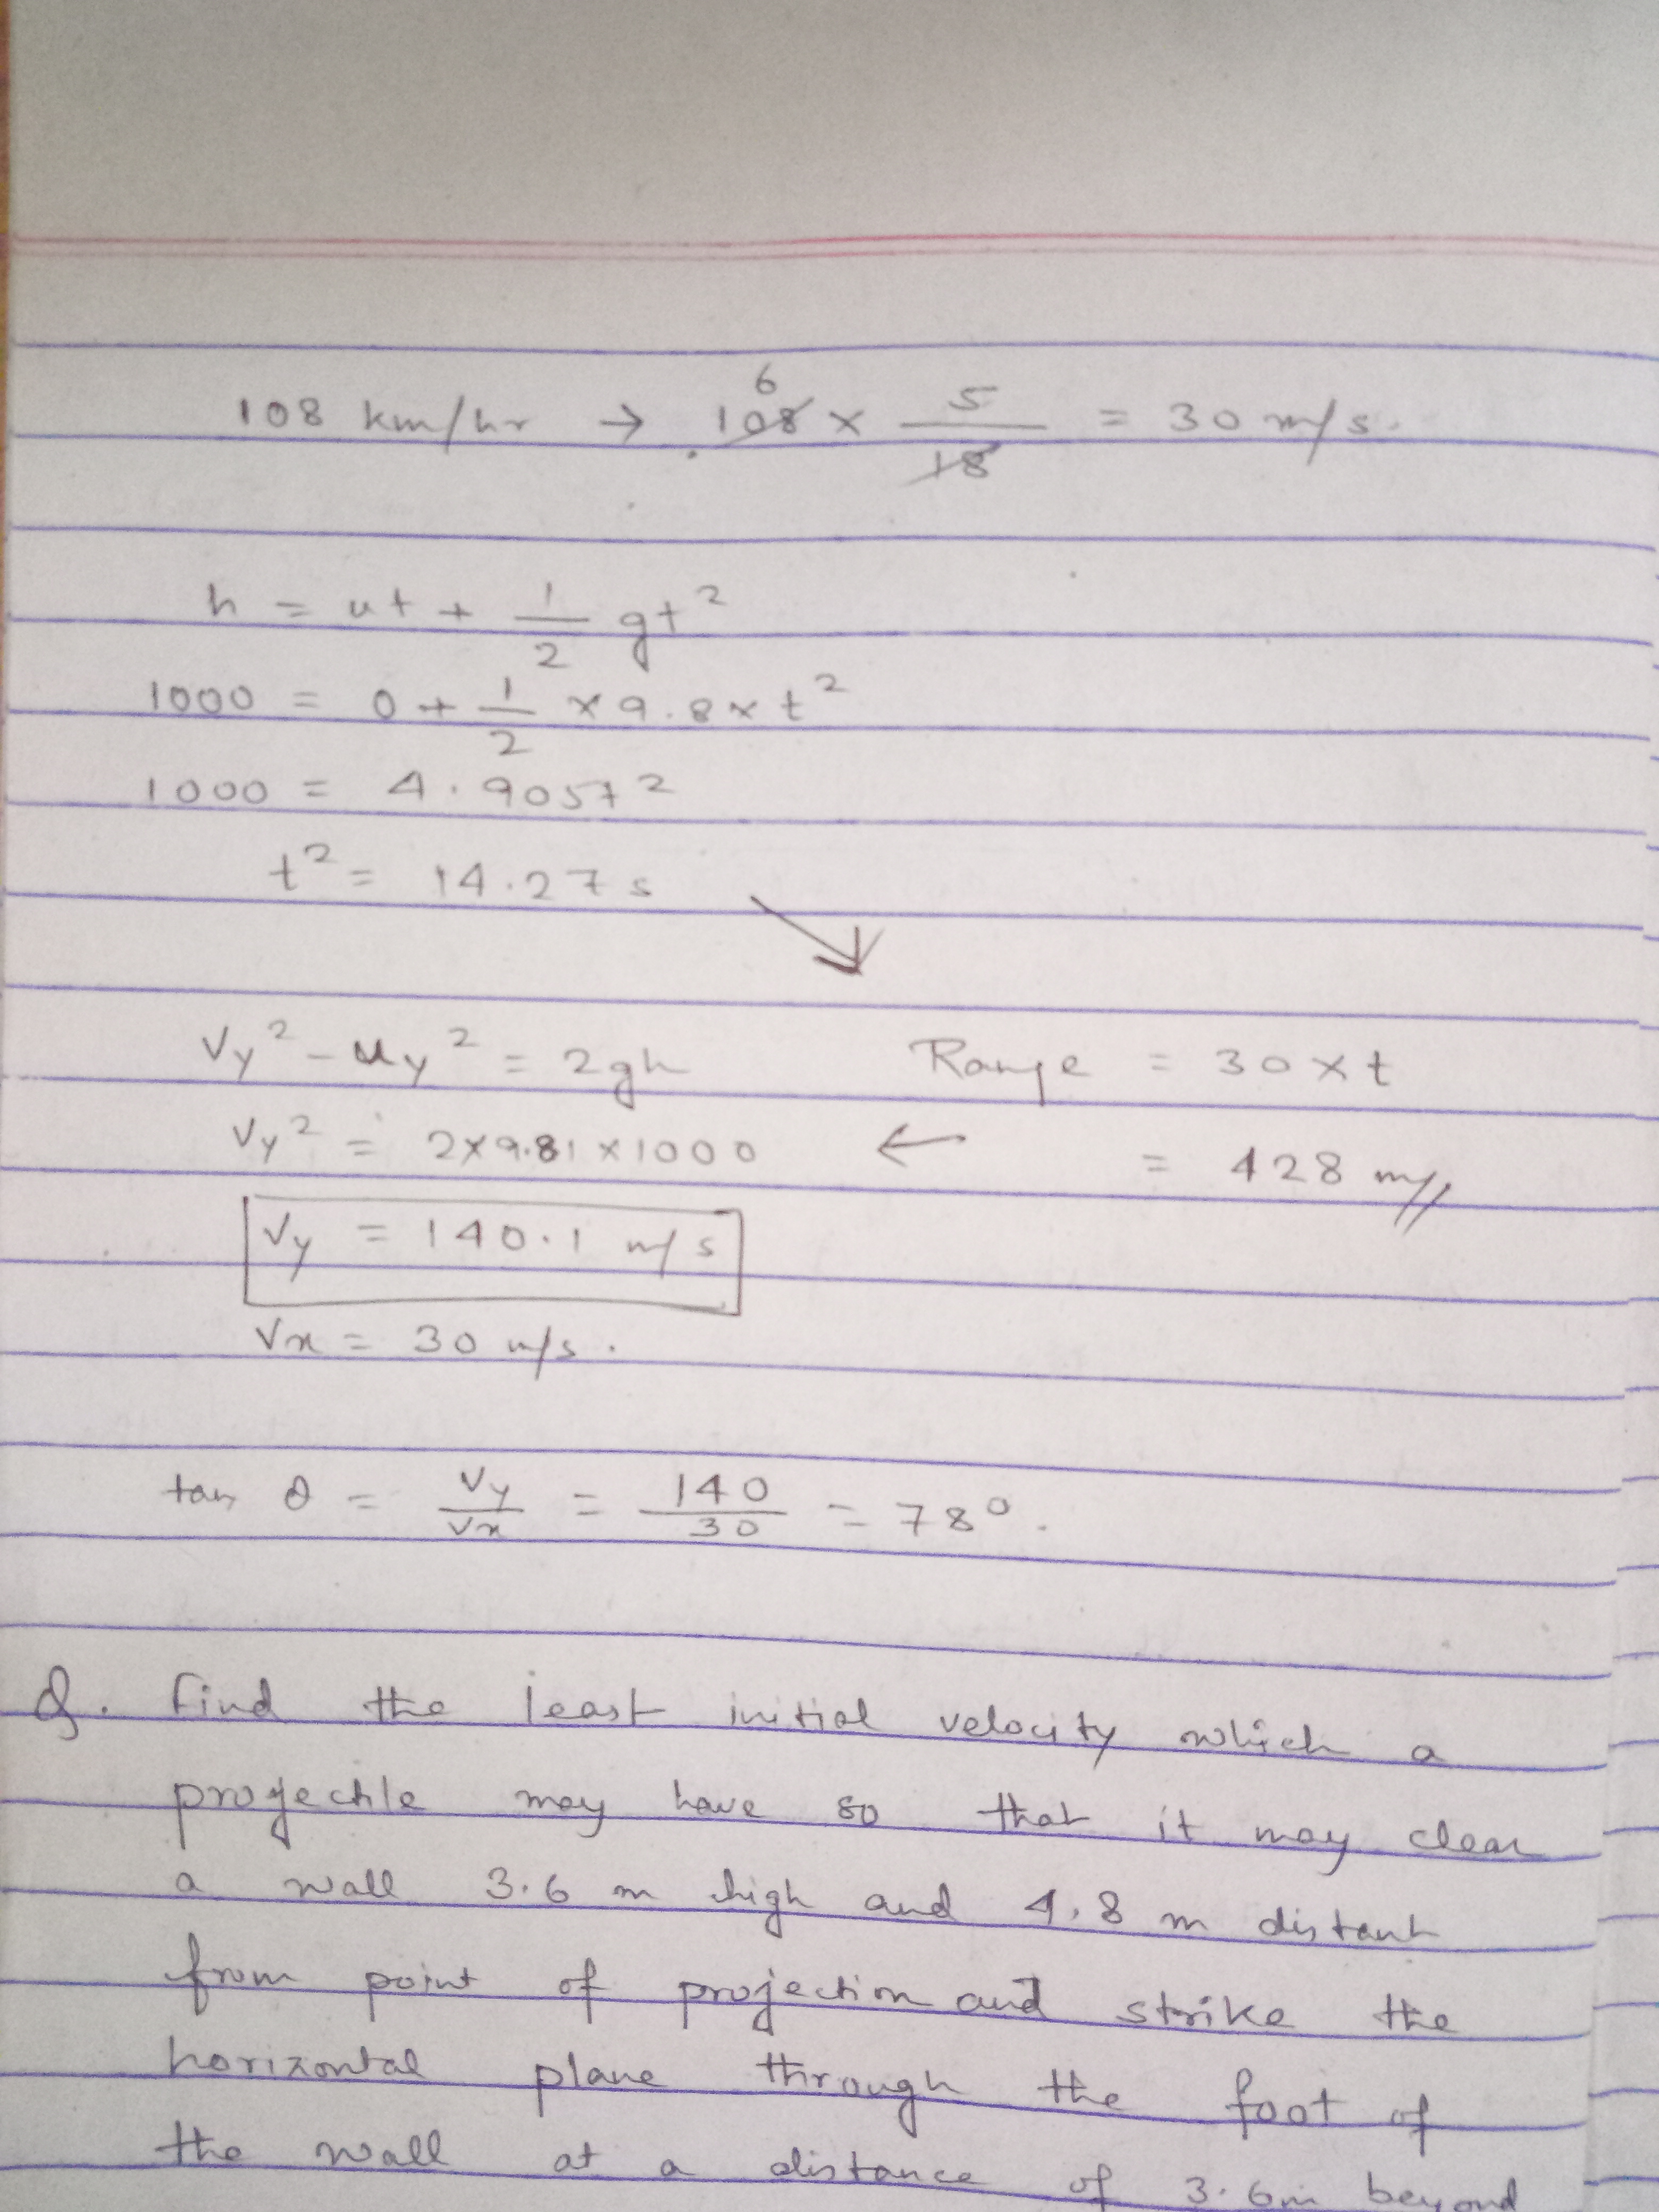 6
108 km/hr → 108 x 5/18 = 30 m/s.
h = ut + 1/2 gt²
1000 = 0 + 1/2 x 9.8 x t²
1000 = 4.905t²
t² = 14.27 s
Vy² - uy² = 2gh
Range = 30 x t
Vy² = 2x9.81x1000 ←
= 428 m//
Vy = 140.1 m/s
Vx = 30 m/s.
tan θ = Vy/Vx = 140/30 = 78°.
Q. Find the least initial velocity which a
projectile may have so that it may clear
a wall 3.6 m high and 4.8 m distant
from point of projection and strike the
horizontal plane through the foot of
the wall at a distance of 3.6m beyond